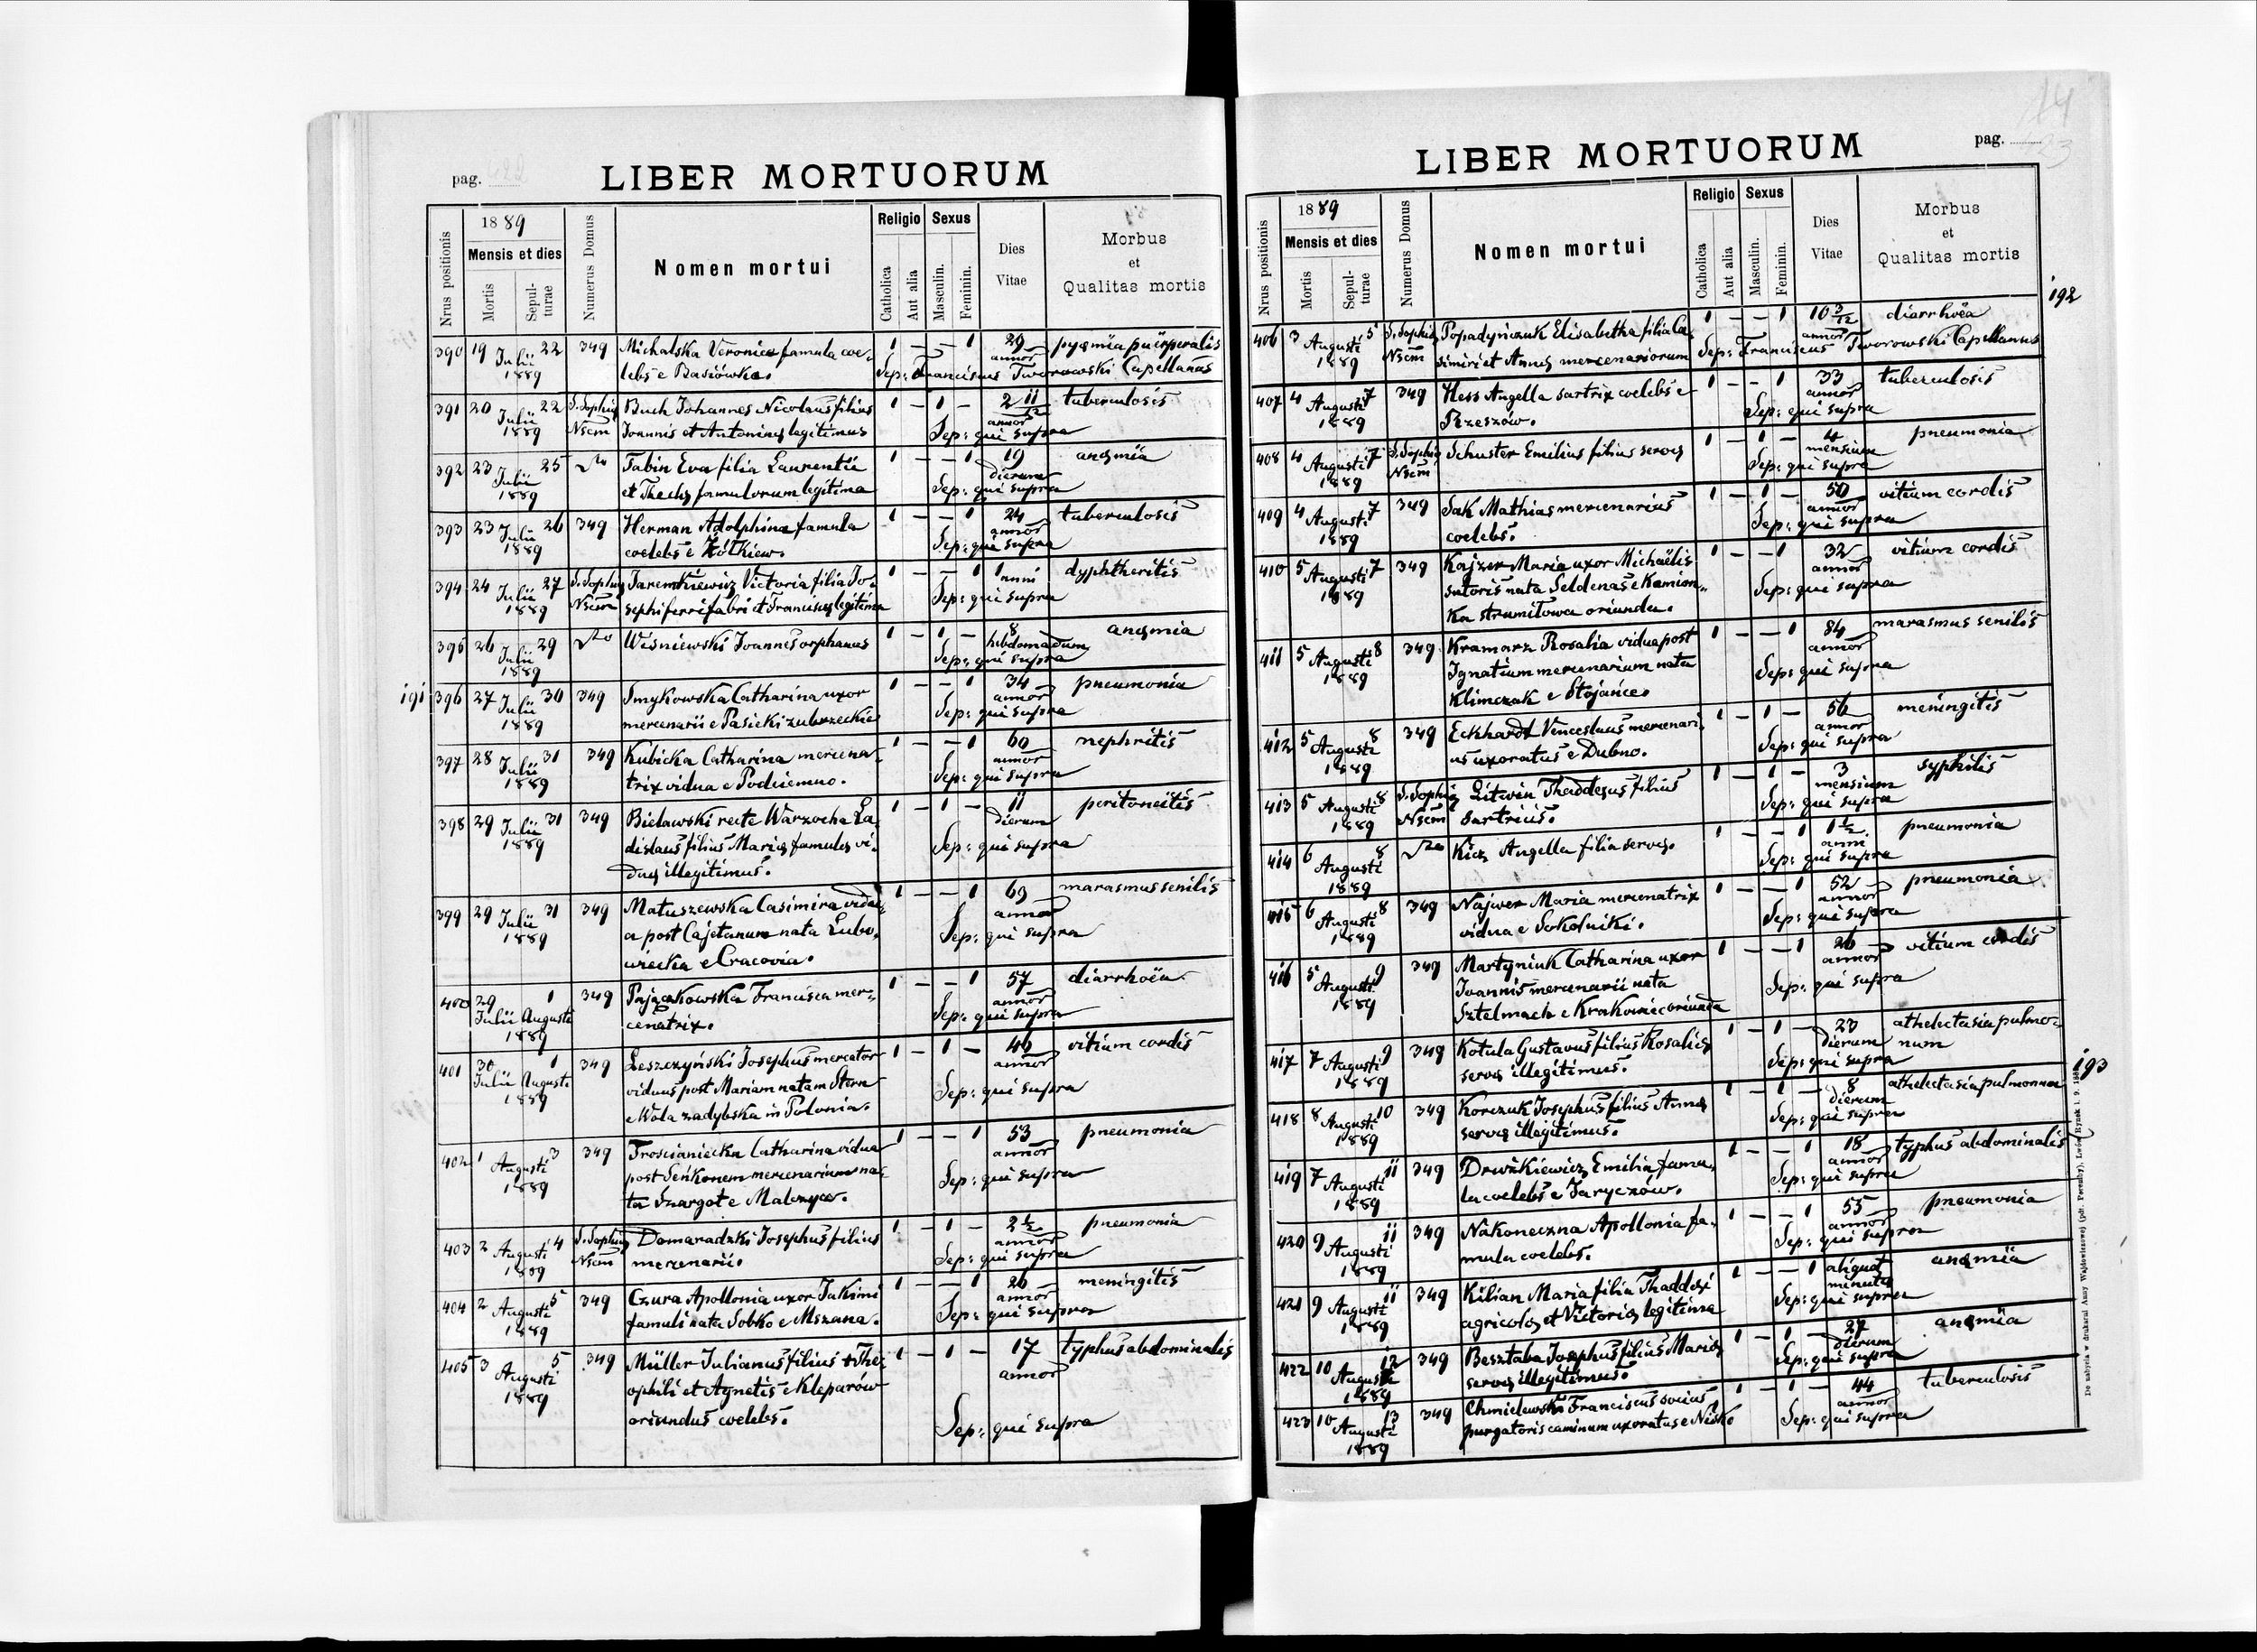 pag.
LIBER MORTUORUM
Nrus positionis
1889
Mensis et dies
Mortis
Sepulturae
Numerus Domus
Nomen mortui
Religio
Catholica
Aut alia
Sexus
Masculin.
Feminin.
Dies
Vitae
Morbus
et
Qualitas mortis
390 19 Julii 22 349 Michalska Veronica famula coe- 1 — — 1 29 pyæmia puërperalis
1889 lebs e Rasiówka. annor
Sep: Franciscus Tworowski Capellanus
391 20 Julii 22 S. Sophiæ Buch Johannes Nicolaus filius 1 — 1 — 2 11/12 tuberculosis
1889 Nsem Joannis et Antoninæ legitimus annor
Sep: qui supra
392 23 Julii 25 Tabin Eva filia Laurentii 1 — — 1 19 anæmia
1889 et Theclæ famulorum legitima dierum
Sep: qui supra
393 23 Julii 26 349 Herman Adolphina famula 1 — — 1 24 tuberculosis
1889 coelebs e Żółkiew. annor
Sep: qui supra
394 24 Julii 27 S. Sophiæ Jaremkiewicz Victoria filia Jo- 1 — — 1 1 anni dyphtheritis
1889 Nsem sephi ferri fabri et Franciscæ legitima
Sep: qui supra
395 26 Julii 29 Wiśniewski Joannes orphanus 1 — 1 — 8 anæmia
1889 hebdomadum
Sep: qui supra
191 396 27 Julii 30 349 Smykowska Catharina uxor 1 — — 1 34 pneumonia
1889 mercenarii e Pasieki zubrzeckie annor
Sep: qui supra
397 28 Julii 31 349 Kubicka Catharina mercena- 1 — — 1 60 nephritis
1889 trix vidua e Podciemno. annor
Sep: qui supra
398 29 Julii 31 349 Bielawski recte Warzocha La- 1 — 1 — 11 peritoneitis
1889 dislaus filius Mariæ famulæ vi- dierum
duæ illegitimus. Sep: qui supra
399 29 Julii 31 349 Matuszewska Casimira vidu- 1 — — 1 69 marasmus senilis
1889 a post Cajetanum nata Lubo- annor
wiecka e Cracovia. Sep: qui supra
400 29 Julii 1 Augusti 349 Pajączkowska Francisca mer- 1 — — 1 57 diarrhoëa
1889 cenatrix. annor
Sep: qui supra
401 30 Julii 1 Augusti 349 Leszczyński Josephus mercator 1 — 1 — 46 vitium cordis
1889 viduus post Mariam natam Stern annor
e Wola zadybska in Polonia. Sep: qui supra
402 1 Augusti 3 349 Trościaniecka Catharina vidua 1 — — 1 53 pneumonia
1889 post Seńkonem mercenarium na- annor
ta Szargot e Malczyce. Sep: qui supra
403 2 Augusti 4 S. Sophiæ Domaradzki Josephus filius 1 — 1 — 2½ pneumonia
1889 Nsem mercenarii. annor
Sep: qui supra
404 2 Augusti 5 349 Czura Apollonia uxor Jakimi 1 — — 1 26 meningitis
1889 famuli nata Sobko e Mszana. annor
Sep: qui supra
405 3 Augusti 5 349 Müller Julianus filius The- 1 — 1 — 17 typhus abdominalis
1889 ophili et Agnetis e Kleparów annor
oriundus coelebs.
Sep: qui supra
pag.
14
LIBER MORTUORUM
Nrus positionis
1889
Mensis et dies
Mortis
Sepulturae
Numerus Domus
Nomen mortui
Religio
Catholica
Aut alia
Sexus
Masculin.
Feminin.
Dies
Vitae
Morbus
et
Qualitas mortis
192
406 3 Augusti 5 S. Sophiæ Popadyńczuk Elisabetha filia Ca- 1 — — 1 10 3/12 diarrhoëa
1889 Nsem simiri et Annæ mercenariorum annor
Sep: Franciscus Tworowski Capellanus
407 4 Augusti 7 349 Hess Angella sartrix coelebs e 1 — — 1 33 tuberculosis
1889 Rzeszów. annor
Sep: qui supra
408 4 Augusti 7 S. Sophiæ Schuster Emilius filius servæ 1 — 1 — 4 pneumonia
1889 Nsem mensium
Sep: qui supra
409 4 Augusti 7 349 Sak Mathias mercenarius 1 — 1 — 50 vitium cordis
1889 coelebs. annor
Sep: qui supra
410 5 Augusti 7 349 Kajzer Maria uxor Michaëlis 1 — — 1 32 vitium cordis
1889 sutoris nata Seldenas e Kamion- annor
ka strumiłowa oriunda. Sep: qui supra
411 5 Augusti 8 349 Kramarz Rosalia vidua post 1 — — 1 84 marasmus senilis
1889 Ignatium mercenarium nata annor
Klimczak e Stojańce. Sep: qui supra
412 5 Augusti 8 349 Eckhardt Venceslaus mercenari- 1 — 1 — 56 meningitis
1889 us uxoratus e Dubno. annor
Sep: qui supra
413 5 Augusti 8 S. Sophiæ Litwin Thaddeæus filius 1 — 1 — 3 syphilis
1889 Nsem sartricis. mensium
Sep: qui supra
414 6 Augusti 8 Kicz Angella filia servæ. 1 — — 1 1½ pneumonia
1889 anni
Sep: qui supra
415 6 Augusti 8 349 Najwer Maria mercenatrix 1 — — 1 52 pneumonia
1889 vidua e Sokolniki. annor
Sep: qui supra
416 5 Augusti 9 349 Martyniuk Catharina uxor 1 — — 1 26 vitium cordis
1889 Joannis mercenarii nata annor
Sztelmach e Krakowiec oriunda Sep: qui supra
417 7 Augusti 9 349 Kotula Gustavus filius Rosaliæ 1 — 1 — 23 athelectasia pulmo-
1889 servæ illegitimus. dierum num
Sep: qui supra
193
418 8 Augusti 10 349 Korczuk Josephus filius Annæ 1 — 1 — 8 athelectasia pulmonum
1889 servæ illegitimus. dierum
Sep: qui supra
419 7 Augusti 11 349 Drwżkiewicz Emilia famu- 1 — — 1 18 typhus abdominalis
1889 la coelebs e Jaryczów. annor
Sep: qui supra
420 9 Augusti 11 349 Nakoneczna Apollonia fa- 1 — — 1 55 pneumonia
1889 mula coelebs. annor
Sep: qui supra
421 9 Augusti 11 349 Kilian Maria filia Thaddæi 1 — — 1 aliquot anæmia
1889 agricolæ et Victoriæ legitima minutis
Sep: qui supra
422 10 Augusti 12 349 Besztaba Josephus filius Mariæ 1 — 1 — 27 anæmia
1889 servæ illegitimus. dierum
Sep: qui supra
423 10 Augusti 13 349 Chmielewski Franciscus socius 1 — 1 — 44 tuberculosis
1889 purgatoris caminum uxoratus e Nisko annor
Sep: qui supra
Do nabycia w drukarni Anny Wajdowiczowej (pdr. Poremby), Lwów Rynek l. 9.